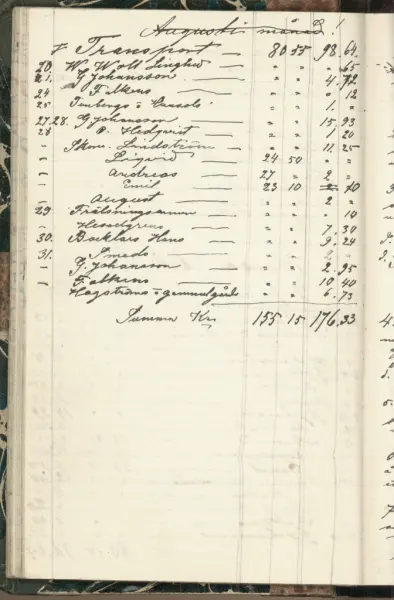 Augusti månad!
Transport — 80 55 98.64
20. W. Wolt — " " " 65
21. G Johansson — " " 4.72
24 Falkens — " " " 12
25 " " 1. "
27.28. G Johansson — " " 15.93
28 P. Hedqvist — " " 1 20
– Skom. Lindström " " 11.25
– Liqvid — 24 50 "
– Andreas — 27 " 2 "
– Emil — 23 10 70
– August — " " 2 "
29 — " " " 10
– — " " 7.30
30. Hans — " " 9.24
31. Smeds — " " 2 –
– G. Johansson — " " 2.95
– Falkens — " " 10 40
Hagströms " " 6.73
Summa Kr 155 15 176.33